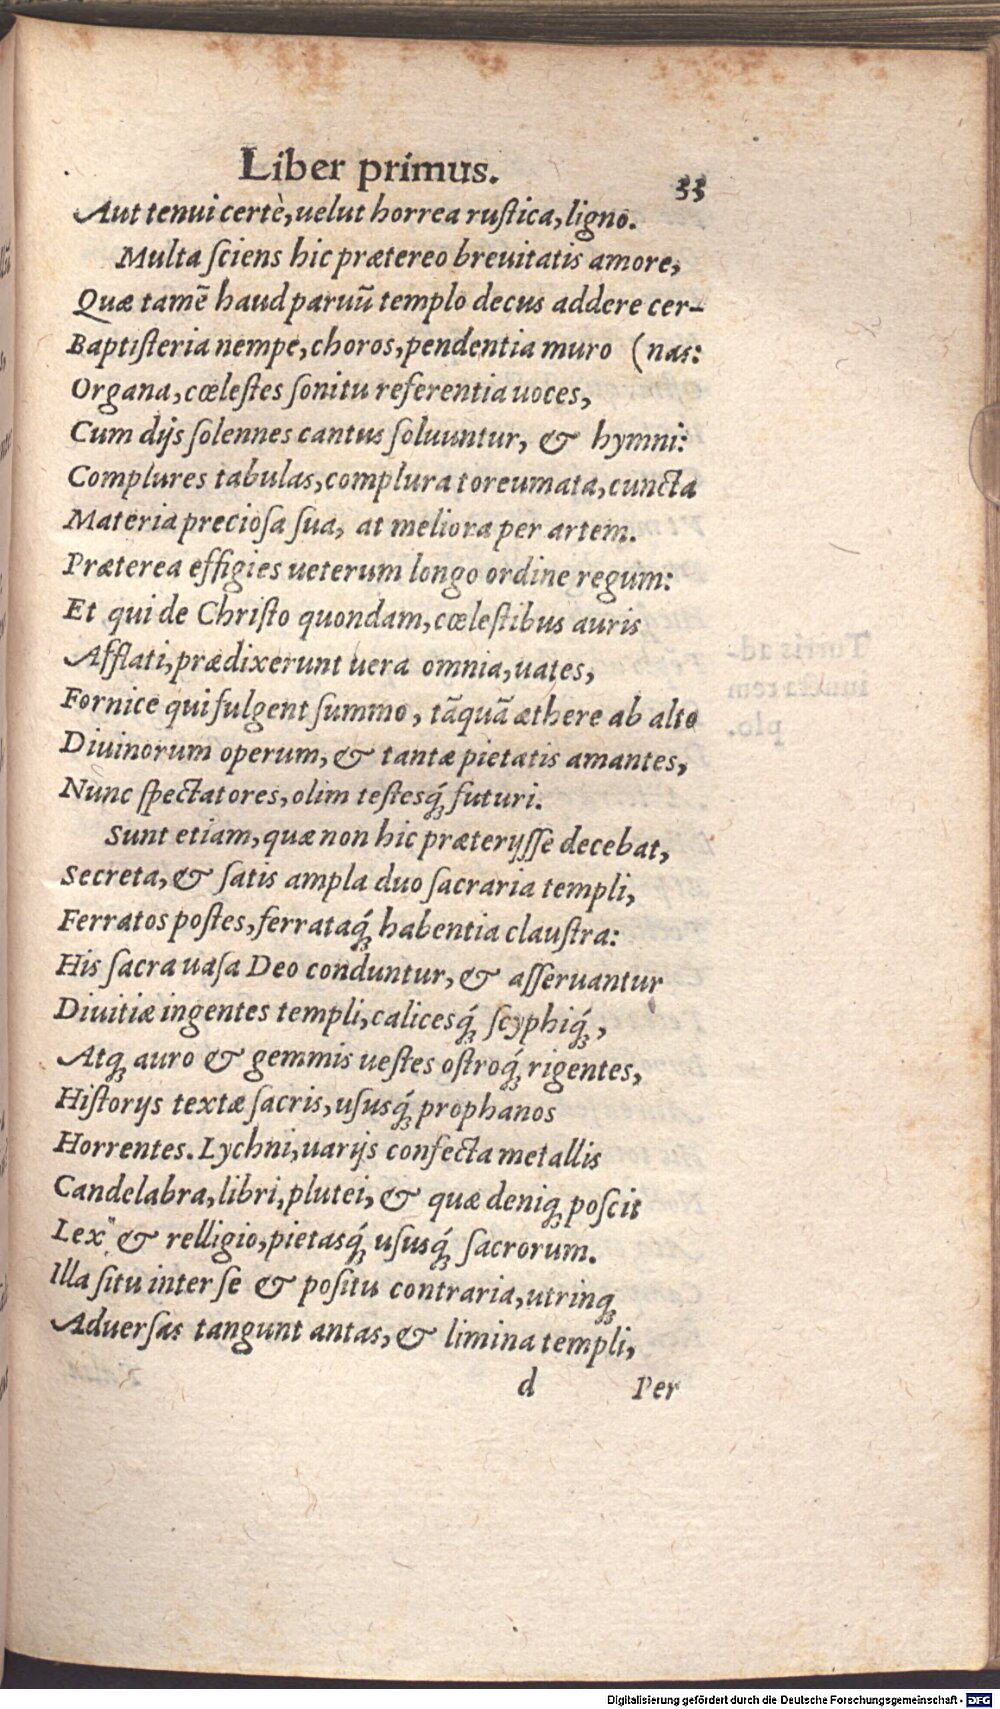 Liber primus. 33
Aut tenui certè, uelut horrea rustica, ligno.
Multa sciens hic prætereo breuitatis amore,
Quæ tamẽ haud paruũ templo decus addere cer-
Baptisteria nempe, choros, pendentia muro (nas:
Organa, cœlestes sonitu referentia uoces,
Cum dijs solennes cantus soluuntur, & hymni:
Complures tabulas, complura toreumata, cuncta
Materia preciosa sua, at meliora per artem.
Præterea effigies ueterum longo ordine regum:
Et qui de Christo quondam, cœlestibus auris
Afflati, prædixerunt uera omnia, uates,
Fornice qui fulgent summo, tãquã æthere ab alto
Diuinorum operum, & tantæ pietatis amantes,
Nunc spectatores, olim testesq́; futuri.
Sunt etiam, quæ non hic præterijsse decebat,
Secreta, & satis ampla duo sacraria templi,
Ferratos postes, ferrataq́; habentia claustra:
His sacra uasa Deo conduntur, & asseruantur
Diuitiæ ingentes templi, calicesq́; scyphiq́;,
Atq; auro & gemmis uestes ostroq́; rigentes,
Historijs textæ sacris, ususq́; prophanos
Horrentes. Lychni, uarijs confecta metallis
Candelabra, libri, plutei, & quæ deniq; poscit
Lex & relligio, pietasq́; ususq́; sacrorum.
Illa situ inter se & positu contraria, utrinq;
Aduersas tangunt antas, & limina templi,
d Per
Digitalisierung gefördert durch die Deutsche Forschungsgemeinschaft - DFG